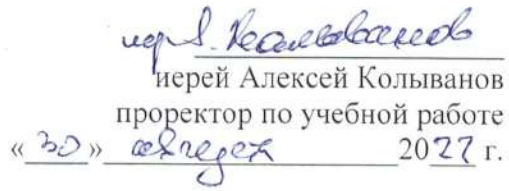 иер. А. Колыванов
иерей Алексей Колыванов
проректор по учебной работе
«30» августа 2022 г.